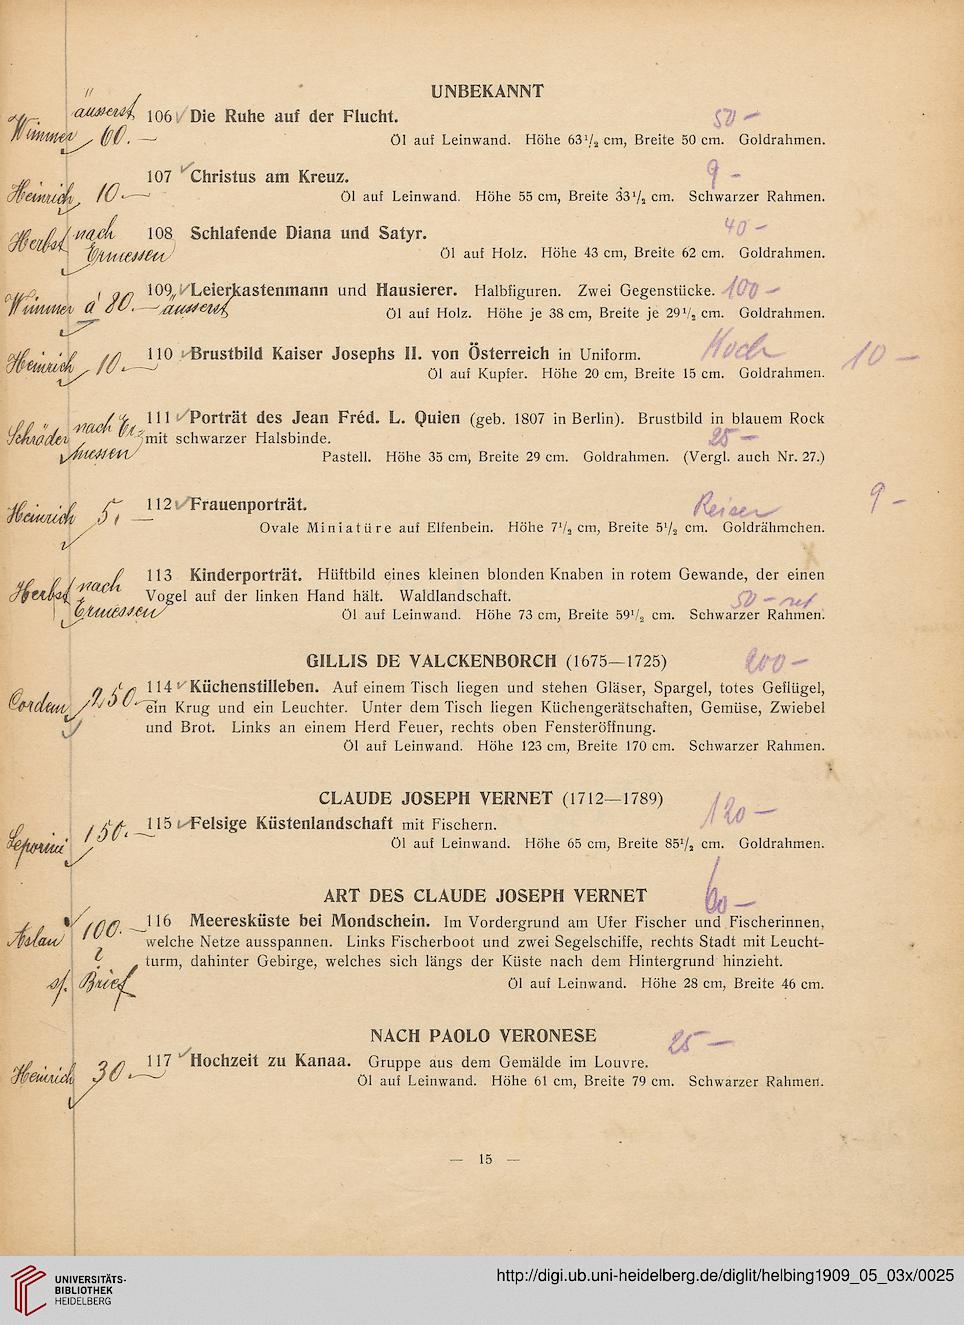 UNBEKANNT
äusserst 106 Die Ruhe auf der Flucht. 50 –
Wimmer 60. — Öl auf Leinwand. Höhe 63½ cm, Breite 50 cm. Goldrahmen.
107 Christus am Kreuz. 9 –
Heinrich 10.— Öl auf Leinwand. Höhe 55 cm, Breite 33½ cm. Schwarzer Rahmen.
Herbst nach 108 Schlafende Diana und Satyr. 40 –
Ermessen Öl auf Holz. Höhe 43 cm, Breite 62 cm. Goldrahmen.
109 Leierkastenmann und Hausierer. Halbfiguren. Zwei Gegenstücke. 100 –
Wimmer à 80.— äusserst Öl auf Holz. Höhe je 38 cm, Breite je 29½ cm. Goldrahmen.
110 Brustbild Kaiser Josephs II. von Österreich in Uniform. Koch 10 –
Heinrich 10.— Öl auf Kupfer. Höhe 20 cm, Breite 15 cm. Goldrahmen.
111 Porträt des Jean Fréd. L. Quien (geb. 1807 in Berlin). Brustbild in blauem Rock
Schröder nach Er- mit schwarzer Halsbinde. 25 –
messen Pastell. Höhe 35 cm, Breite 29 cm. Goldrahmen. (Vergl. auch Nr. 27.)
112 Frauenporträt. Reiser 9 –
Heinrich 5. — Ovale Miniatüre auf Elfenbein. Höhe 7½ cm, Breite 5½ cm. Goldrähmchen.
113 Kinderporträt. Hüftbild eines kleinen blonden Knaben in rotem Gewande, der einen
Herbst nach Vogel auf der linken Hand hält. Waldlandschaft. 50 – ret
Ermessen Öl auf Leinwand. Höhe 73 cm, Breite 59½ cm. Schwarzer Rahmen.
GILLIS DE VALCKENBORCH (1675—1725) 200 –
114 Küchenstilleben. Auf einem Tisch liegen und stehen Gläser, Spargel, totes Geflügel,
250.— ein Krug und ein Leuchter. Unter dem Tisch liegen Küchengerätschaften, Gemüse, Zwiebel
und Brot. Links an einem Herd Feuer, rechts oben Fensteröffnung.
Öl auf Leinwand. Höhe 123 cm, Breite 170 cm. Schwarzer Rahmen.
CLAUDE JOSEPH VERNET (1712—1789) 120 –
150.— 115 Felsige Küstenlandschaft mit Fischern.
Leporini Öl auf Leinwand. Höhe 65 cm, Breite 85½ cm. Goldrahmen.
ART DES CLAUDE JOSEPH VERNET 60 –
100.— 116 Meeresküste bei Mondschein. Im Vordergrund am Ufer Fischer und Fischerinnen,
Aslan welche Netze ausspannen. Links Fischerboot und zwei Segelschiffe, rechts Stadt mit Leucht-
turm, dahinter Gebirge, welches sich längs der Küste nach dem Hintergrund hinzieht.
s/. Brief Öl auf Leinwand. Höhe 28 cm, Breite 46 cm.
NACH PAOLO VERONESE 25 –
117 Hochzeit zu Kanaa. Gruppe aus dem Gemälde im Louvre.
Heinrich 30.— Öl auf Leinwand. Höhe 61 cm, Breite 79 cm. Schwarzer Rahmen.
— 15 —
UNIVERSITÄTS-
BIBLIOTHEK
HEIDELBERG
http://digi.ub.uni-heidelberg.de/diglit/helbing1909_05_03x/0025